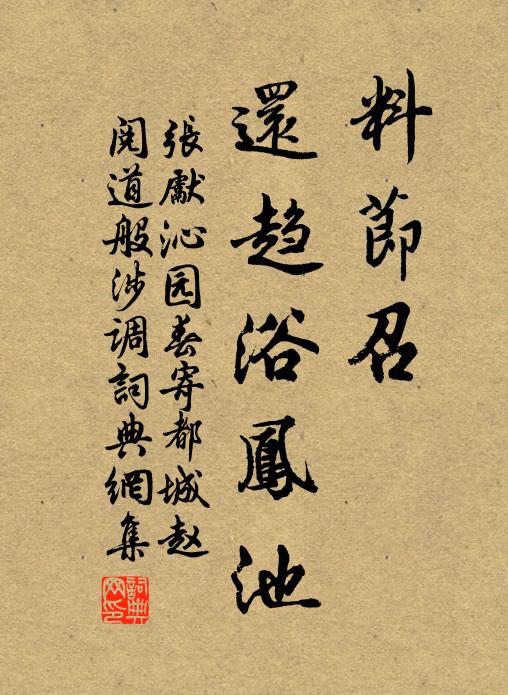 料節召
還趋浴鳳池
張獻沁园春寄都城赵
閱道般涉调詞典網集
詞典网印